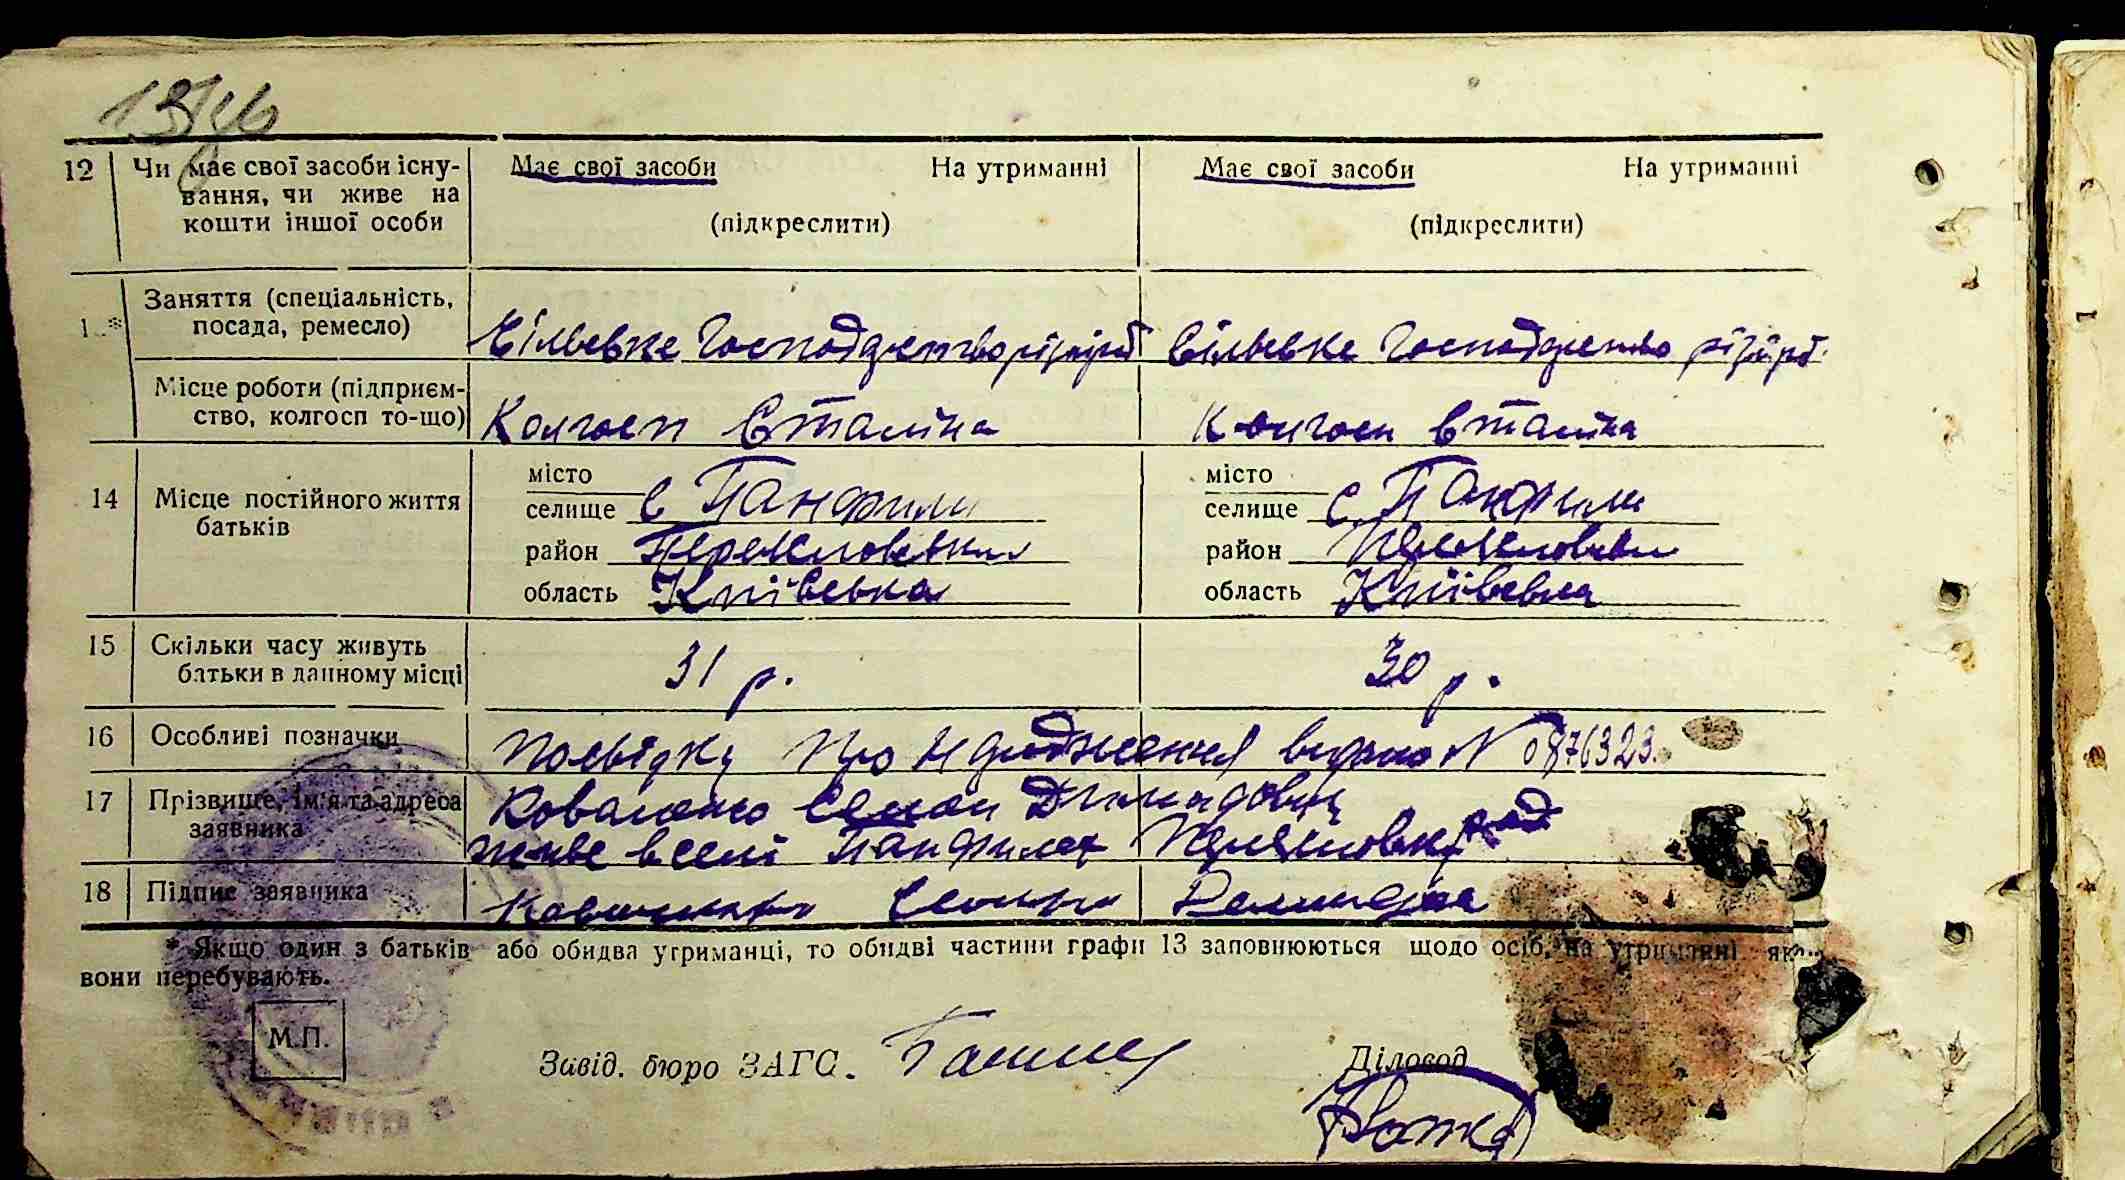 12 Чи має свої засоби існу-
вання, чи живе на
кошти іншої особи
Має свої засоби На утриманні
(підкреслити)
Має свої засоби На утриманні
(підкреслити)
Заняття (спеціальність,
посада, ремесло)
Сільське господарство
Сільське господарство
Місце роботи (підприєм-
ство, колгосп то-що)
Колгосп Сталіна
Колгосп Сталіна
14 Місце постійного життя
батьків
місто
селище с Панфили
район
область Київська
місто
селище с Панфили
район
область Київська
15 Скільки часу живуть
батьки в данному місці
31 р.
30 р.
16 Особливі позначки
Посвідку про народження видано № 0876323
17 Прізвище, ім'я та адреса
заявника
Коваленко Семен
живе в селі Панфилах
18 Підпис заявника
* Якщо один з батьків або обидва утриманці, то обидві частини графи 13 заповнюються щодо осіб, на утриманні яких
вони перебувають.
М.П.
Завід. бюро ЗАГС.
Діловод